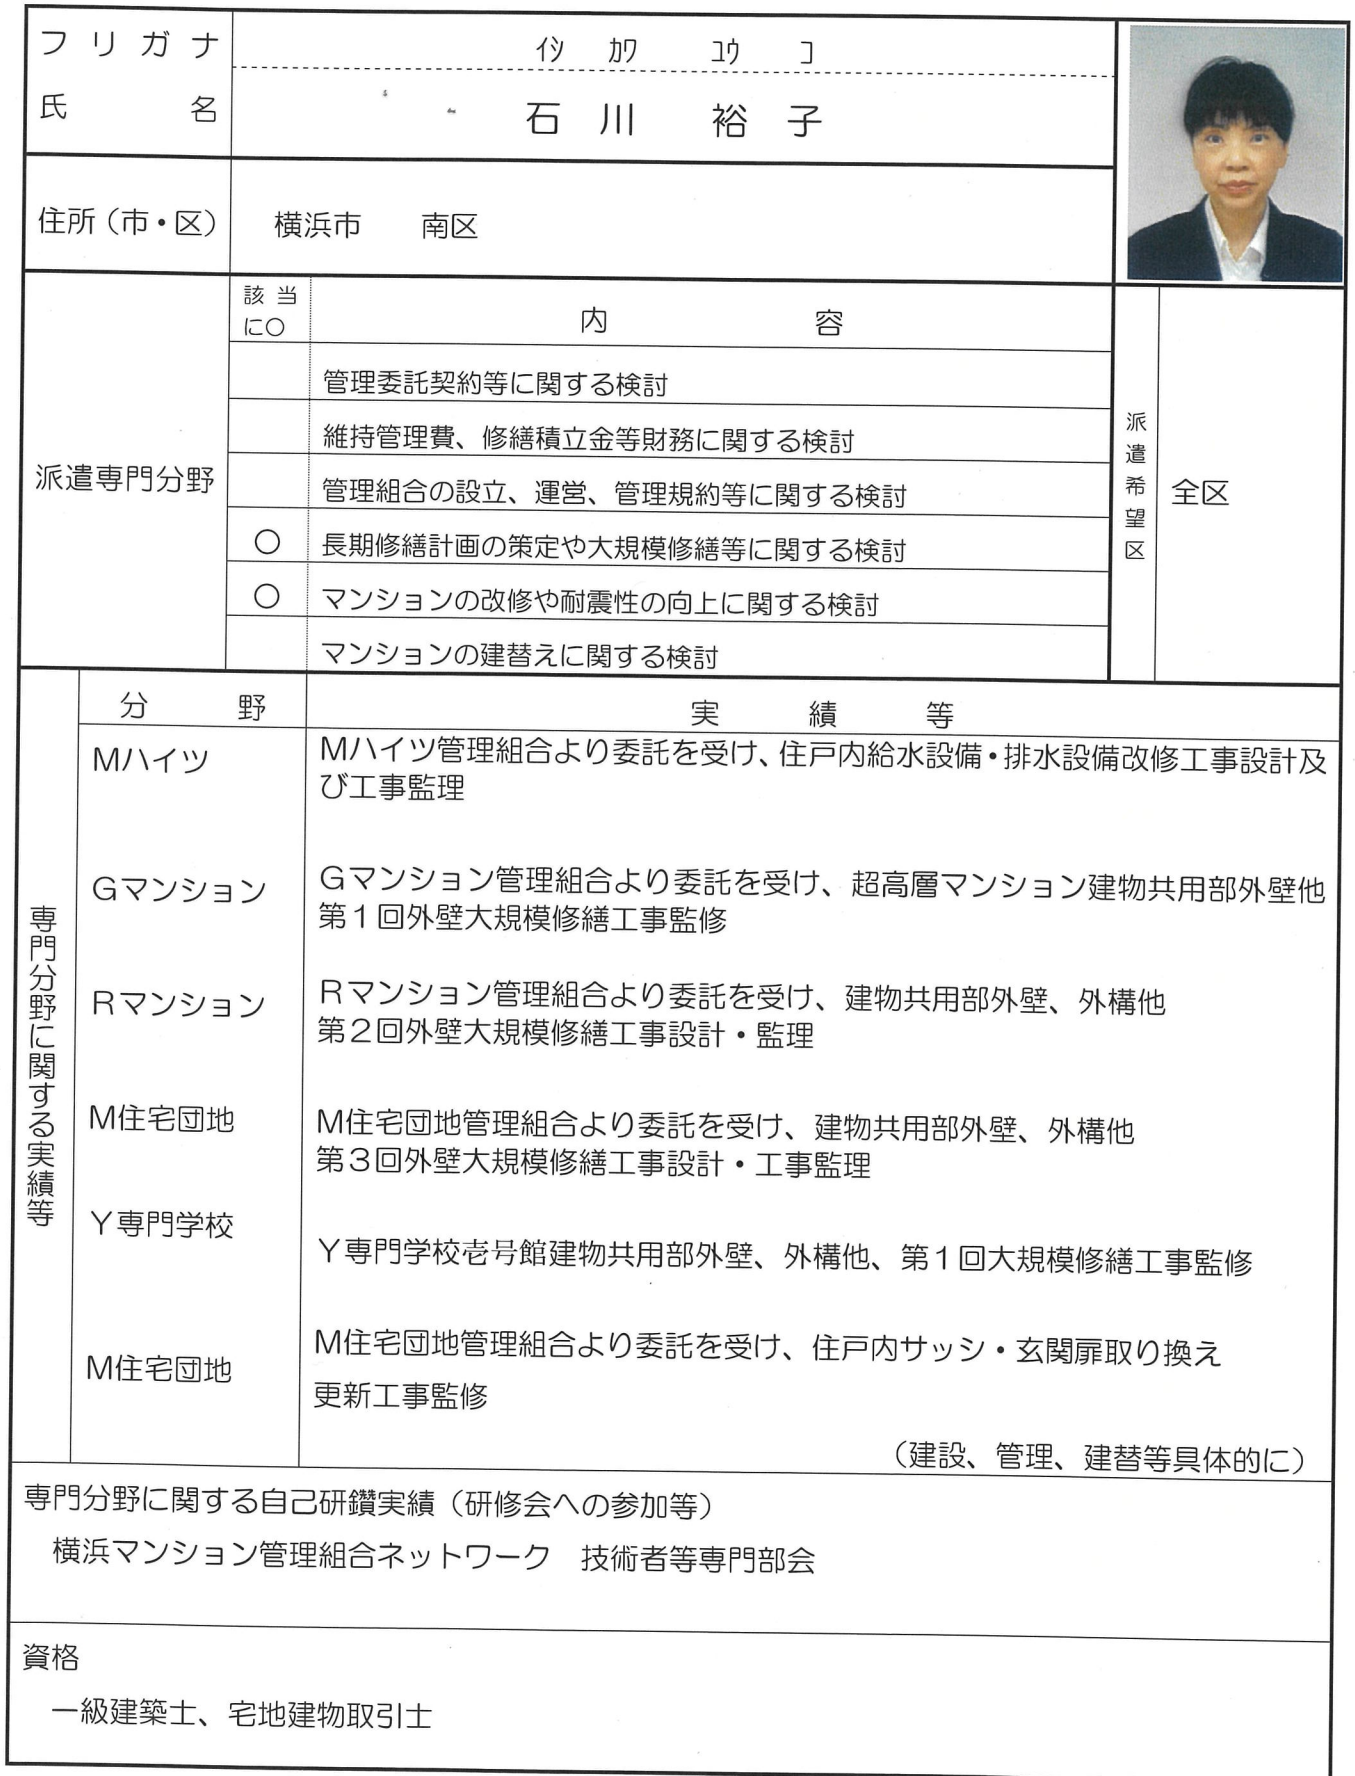 フリガナ
イシ カワ ユウ コ
氏名
石川 裕子
住所（市・区）
横浜市 南区
派遣専門分野
該当
に○
内容
管理委託契約等に関する検討
維持管理費、修繕積立金等財務に関する検討
管理組合の設立、運営、管理規約等に関する検討
○ 長期修繕計画の策定や大規模修繕等に関する検討
○ マンションの改修や耐震性の向上に関する検討
マンションの建替えに関する検討
派遣希望区
全区
専門分野に関する実績等
分野
実績等
Mハイツ
Mハイツ管理組合より委託を受け、住戸内給水設備・排水設備改修工事設計及
び工事監理
Gマンション
Gマンション管理組合より委託を受け、超高層マンション建物共用部外壁他
第1回外壁大規模修繕工事監修
Rマンション
Rマンション管理組合より委託を受け、建物共用部外壁、外構他
第2回外壁大規模修繕工事設計・監理
M住宅団地
M住宅団地管理組合より委託を受け、建物共用部外壁、外構他
第3回外壁大規模修繕工事設計・工事監理
Y専門学校
Y専門学校壱号館建物共用部外壁、外構他、第1回大規模修繕工事監修
M住宅団地
M住宅団地管理組合より委託を受け、住戸内サッシ・玄関扉取り換え
更新工事監修
（建設、管理、建替等具体的に）
専門分野に関する自己研鑽実績（研修会への参加等）
横浜マンション管理組合ネットワーク 技術者等専門部会
資格
一級建築士、宅地建物取引士